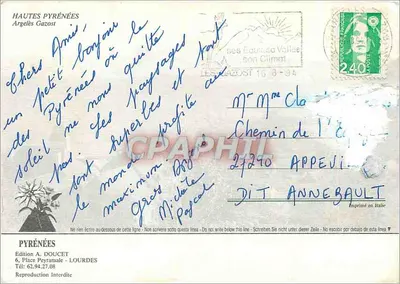 HAUTES PYRÉNÉES
Argelès Gazost
Chers Amis,
un petit bonjour
des Pyrénées où le
soleil ne nous quitte
pas. Les paysages
sont superbes et tout
le monde profite au
maximum.
Gros
Michèle
Pascal
bon Climat
2,40
Mr Mme
Chemin de l'
27290 APPEVI
DIT ANNEBAULT
CPAPHIL
Imprimé en Italie
Ne rien écrire au-dessous de cette ligne - Non scrivere sotto questa linea - Do not write below this line - No escribir por debajo de esta linea
PYRÉNÉES
Edition A. DOUCET
6, Place Peyramale - LOURDES
Tél: 62.94.27.08
Reproduction Interdite